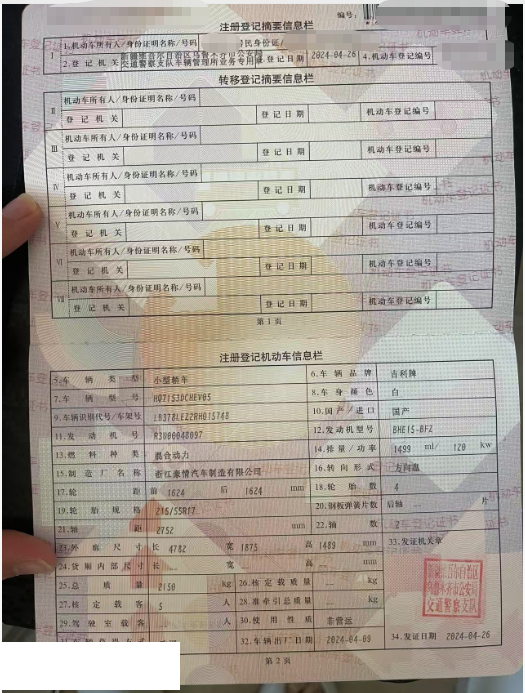 编号:
注册登记摘要信息栏
I 1.机动车所有人/身份证明名称/号码 居民身份证/
2.登记机关 新疆维吾尔自治区乌鲁木齐市公安局交通警察支队车辆管理所业务专用 3.登记日期 2024-04-26 4.机动车登记编号
转移登记摘要信息栏
II 机动车所有人/身份证明名称/号码
登记机关 登记日期 机动车登记编号
III 机动车所有人/身份证明名称/号码
登记机关 登记日期 机动车登记编号
IV 机动车所有人/身份证明名称/号码
登记机关 登记日期 机动车登记编号
V 机动车所有人/身份证明名称/号码
登记机关 登记日期 机动车登记编号
VI 机动车所有人/身份证明名称/号码
登记机关 登记日期 机动车登记编号
VII 机动车所有人/身份证明名称/号码
登记机关 登记日期 机动车登记编号
第1页
注册登记机动车信息栏
5.车辆类型 小型轿车 6.车辆品牌 吉利牌
7.车辆型号 HQ7153DCHEV05 8.车身颜色 白
9.车辆识别代号/车架号 10.国产/进口 国产
11.发动机号 R3U00048097 12.发动机型号 BHE15-BFZ
13.燃料种类 混合动力 14.排量/功率 1499 ml/ 120 kw
15.制造厂名称 浙江豪情汽车制造有限公司 16.转向形式 方向盘
17.轮距 前 1624 后 1624 mm 18.轮胎数 4
19.轮胎规格 215/55R17 20.钢板弹簧片数 后轴 片
21.轴距 2752 mm 22.轴数 2
23.外廓尺寸 长 4782 宽 1875 高 1489 mm 33.发证机关章
24.货厢内部尺寸 长 宽 高 mm
25.总质量 2150 kg 26.核定载质量 kg
27.核定载客 5 人 28.准牵引总质量 kg
29.驾驶室载客 人 30.使用性质 非营运
32.车辆出厂日期 2024-04-09 34.发证日期 2024-04-26
新疆维吾尔自治区
乌鲁木齐市公安局
交通警察支队
第2页